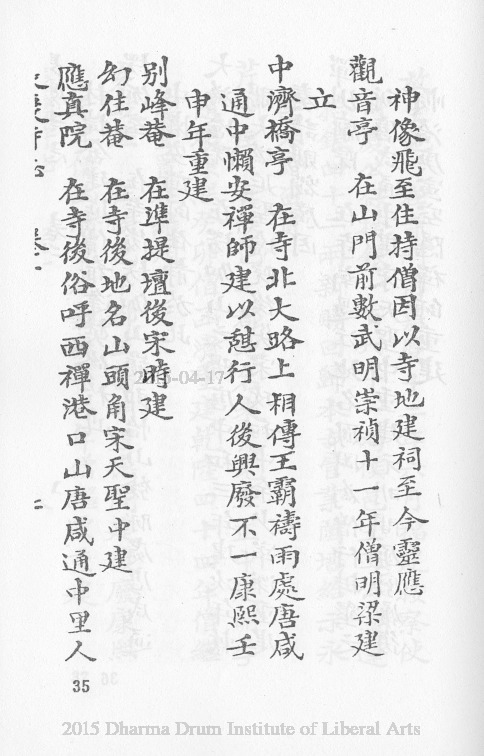 神像飛至住持僧因以寺地建祠至今靈應
觀音亭　在山門前數武明崇禎十一年僧明梁建
立
中濟橋亭　在寺北大路上相傳王霸禱雨處唐咸
通中懶安禪師建以憩行人後興廢不一康熙壬
申年重建
别峰菴　在準提壇後宋時建
幻住菴　在寺後地名山頭角宋天聖中建
應真院　在寺後俗呼西禪港口山唐咸通中里人
35
2015 Dharma Drum Institute of Liberal Arts